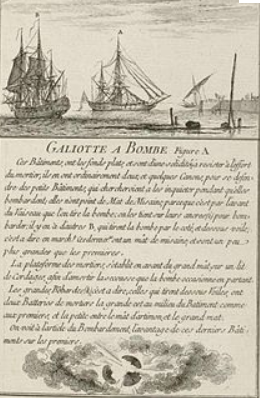 GALIOTTE A BOMBE Figure A
Ces Bâtiments, ont les fonds plats, et sont d'une solidité à resister à l'effort
du mortier, ils en ont ordinairement deux, et quelques Canons, pour se défen
dre des petits Bâtiments, qui chercheroient à les inquieter pendant qu'elles
bombardent; elles n'ont point de Mât de Misaine, parceque c'est par l'avant
du Vaisseau que l'on tire la bombe, en les tient sur leurs ancres(s) pour bom-
barder; il y en à d'autres B, qui tirent la bombe par le coté, et dessous voile,
c'est a dire en marche! ces dernieres ont un mât de misaine, et sont un peu
plus grandes que les premieres.
La plateforme des mortiers, s'etablit en avant du grand mât, sur un lit
de Cordages, afin d'amortir la secousse que la bombe occasionne en partant.
Les grandes Bombardes (B) c'est a dire, celles qui tirent dessous Voiles, ont
deux Batteries de mortiers la grande est au milieu du Batiment comme
aux premiers, et la petite entre le mât d'artimon, et le grand mat.
On voit à l'article du Bombardement, l'avantage de ces derniers Bâti-
ments sur les premiers.